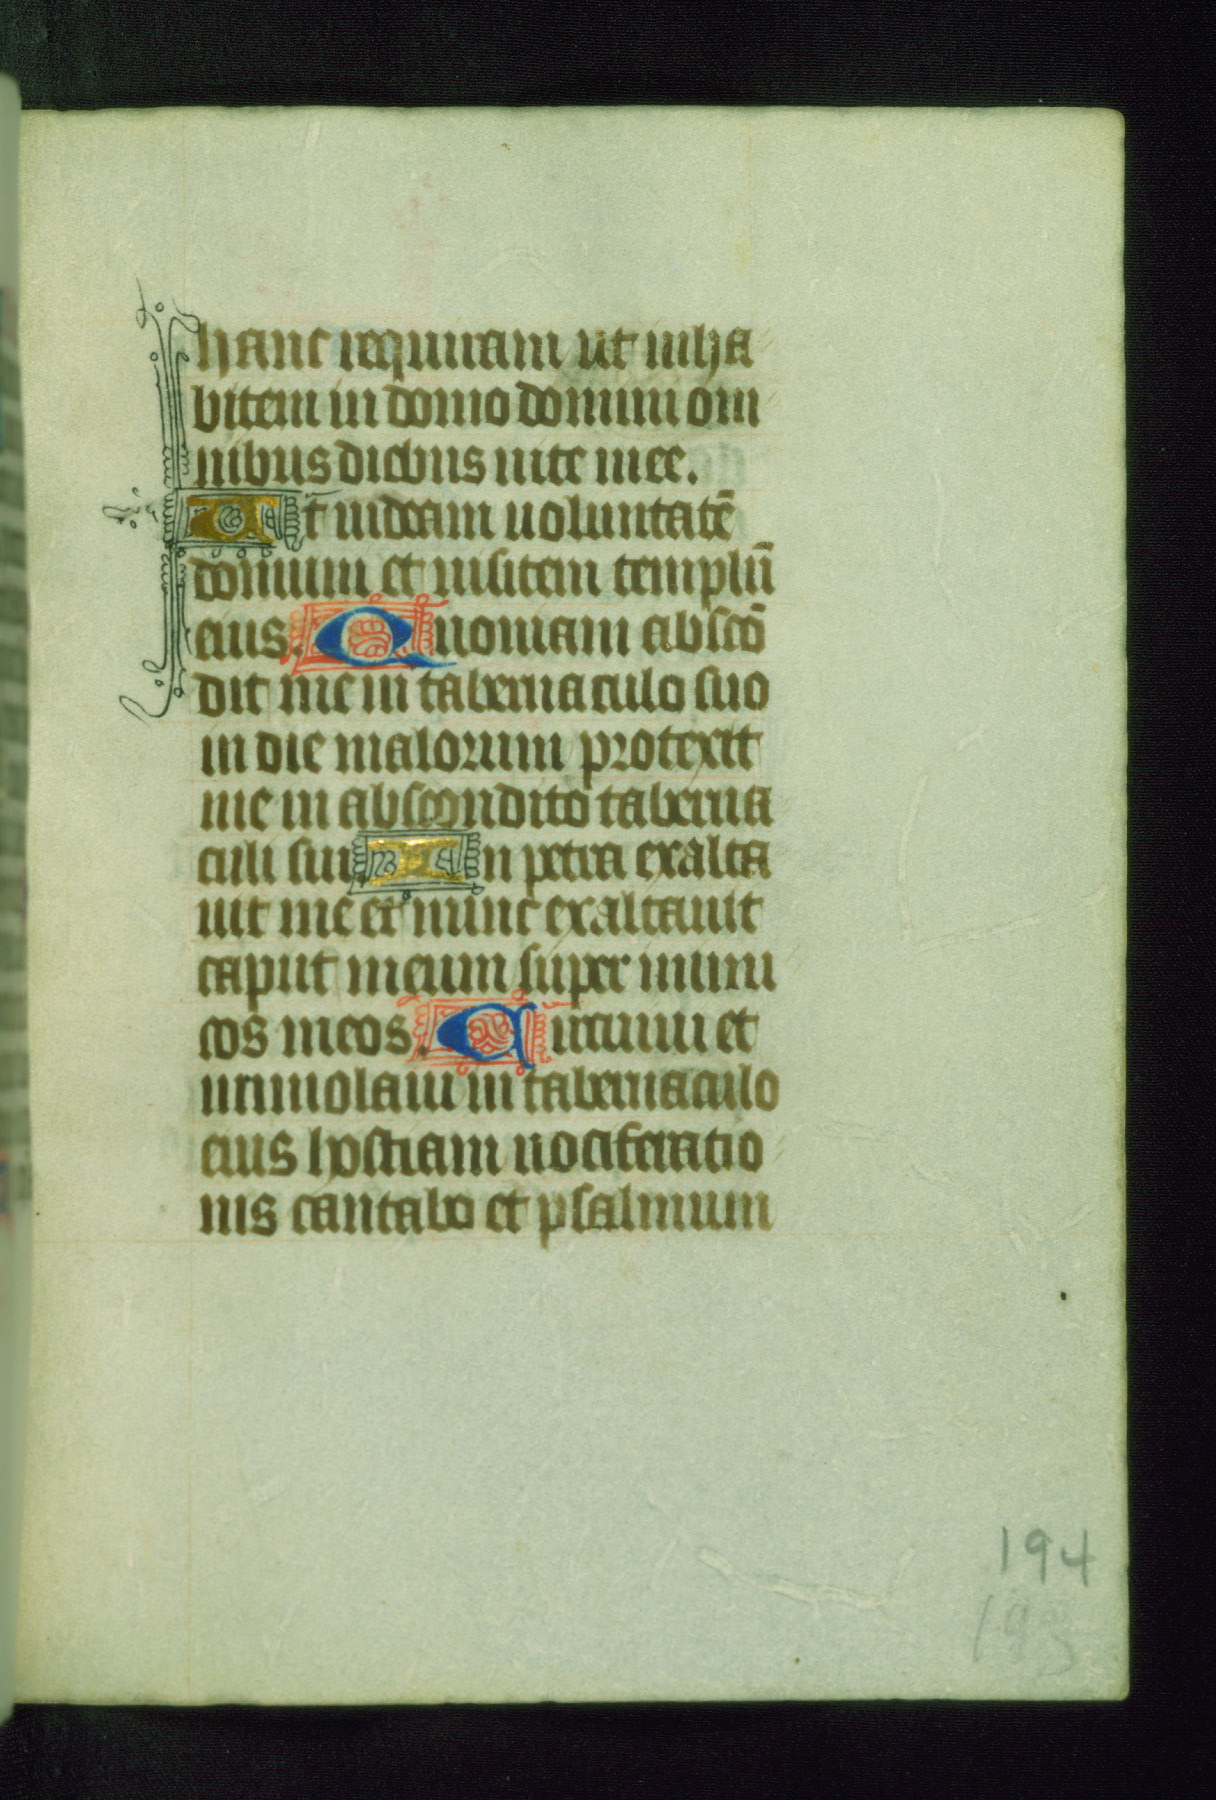 hanc requiram ut inha
bitem in domo domini om
nibus diebus uite mee.
Ut uideam uoluntatē
domini et uisitem templū
eius. Quoniam abscō
dit me in tabernaculo suo
in die malorum protexit
me in abscondito taberna
culi sui. In petra exalta
uit me et nunc exaltauit
caput meum super inimi
cos meos. Circuiui et
immolaui in tabernaculo
eius hostiam uociferatio
nis cantabo et psalmum
194
193